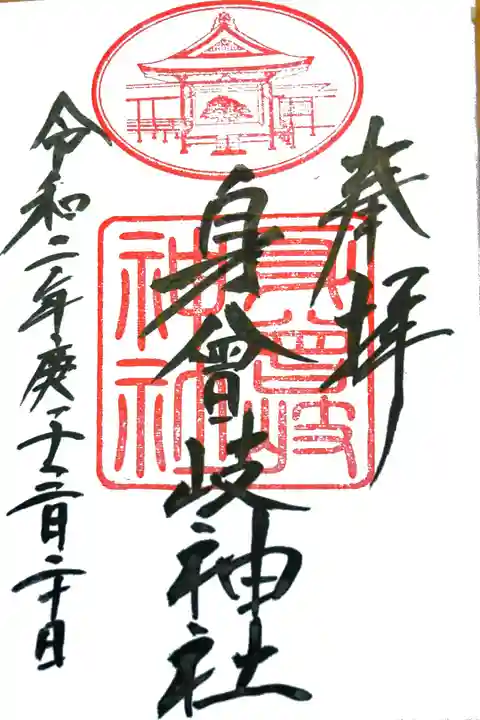 奉拝
身曾岐神社
身曾岐神社
令和二年庚子三月二十日